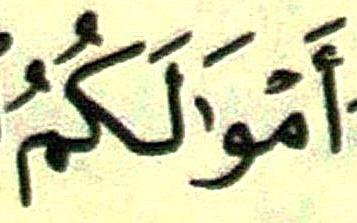 أَمْوَٰلَكُمُ